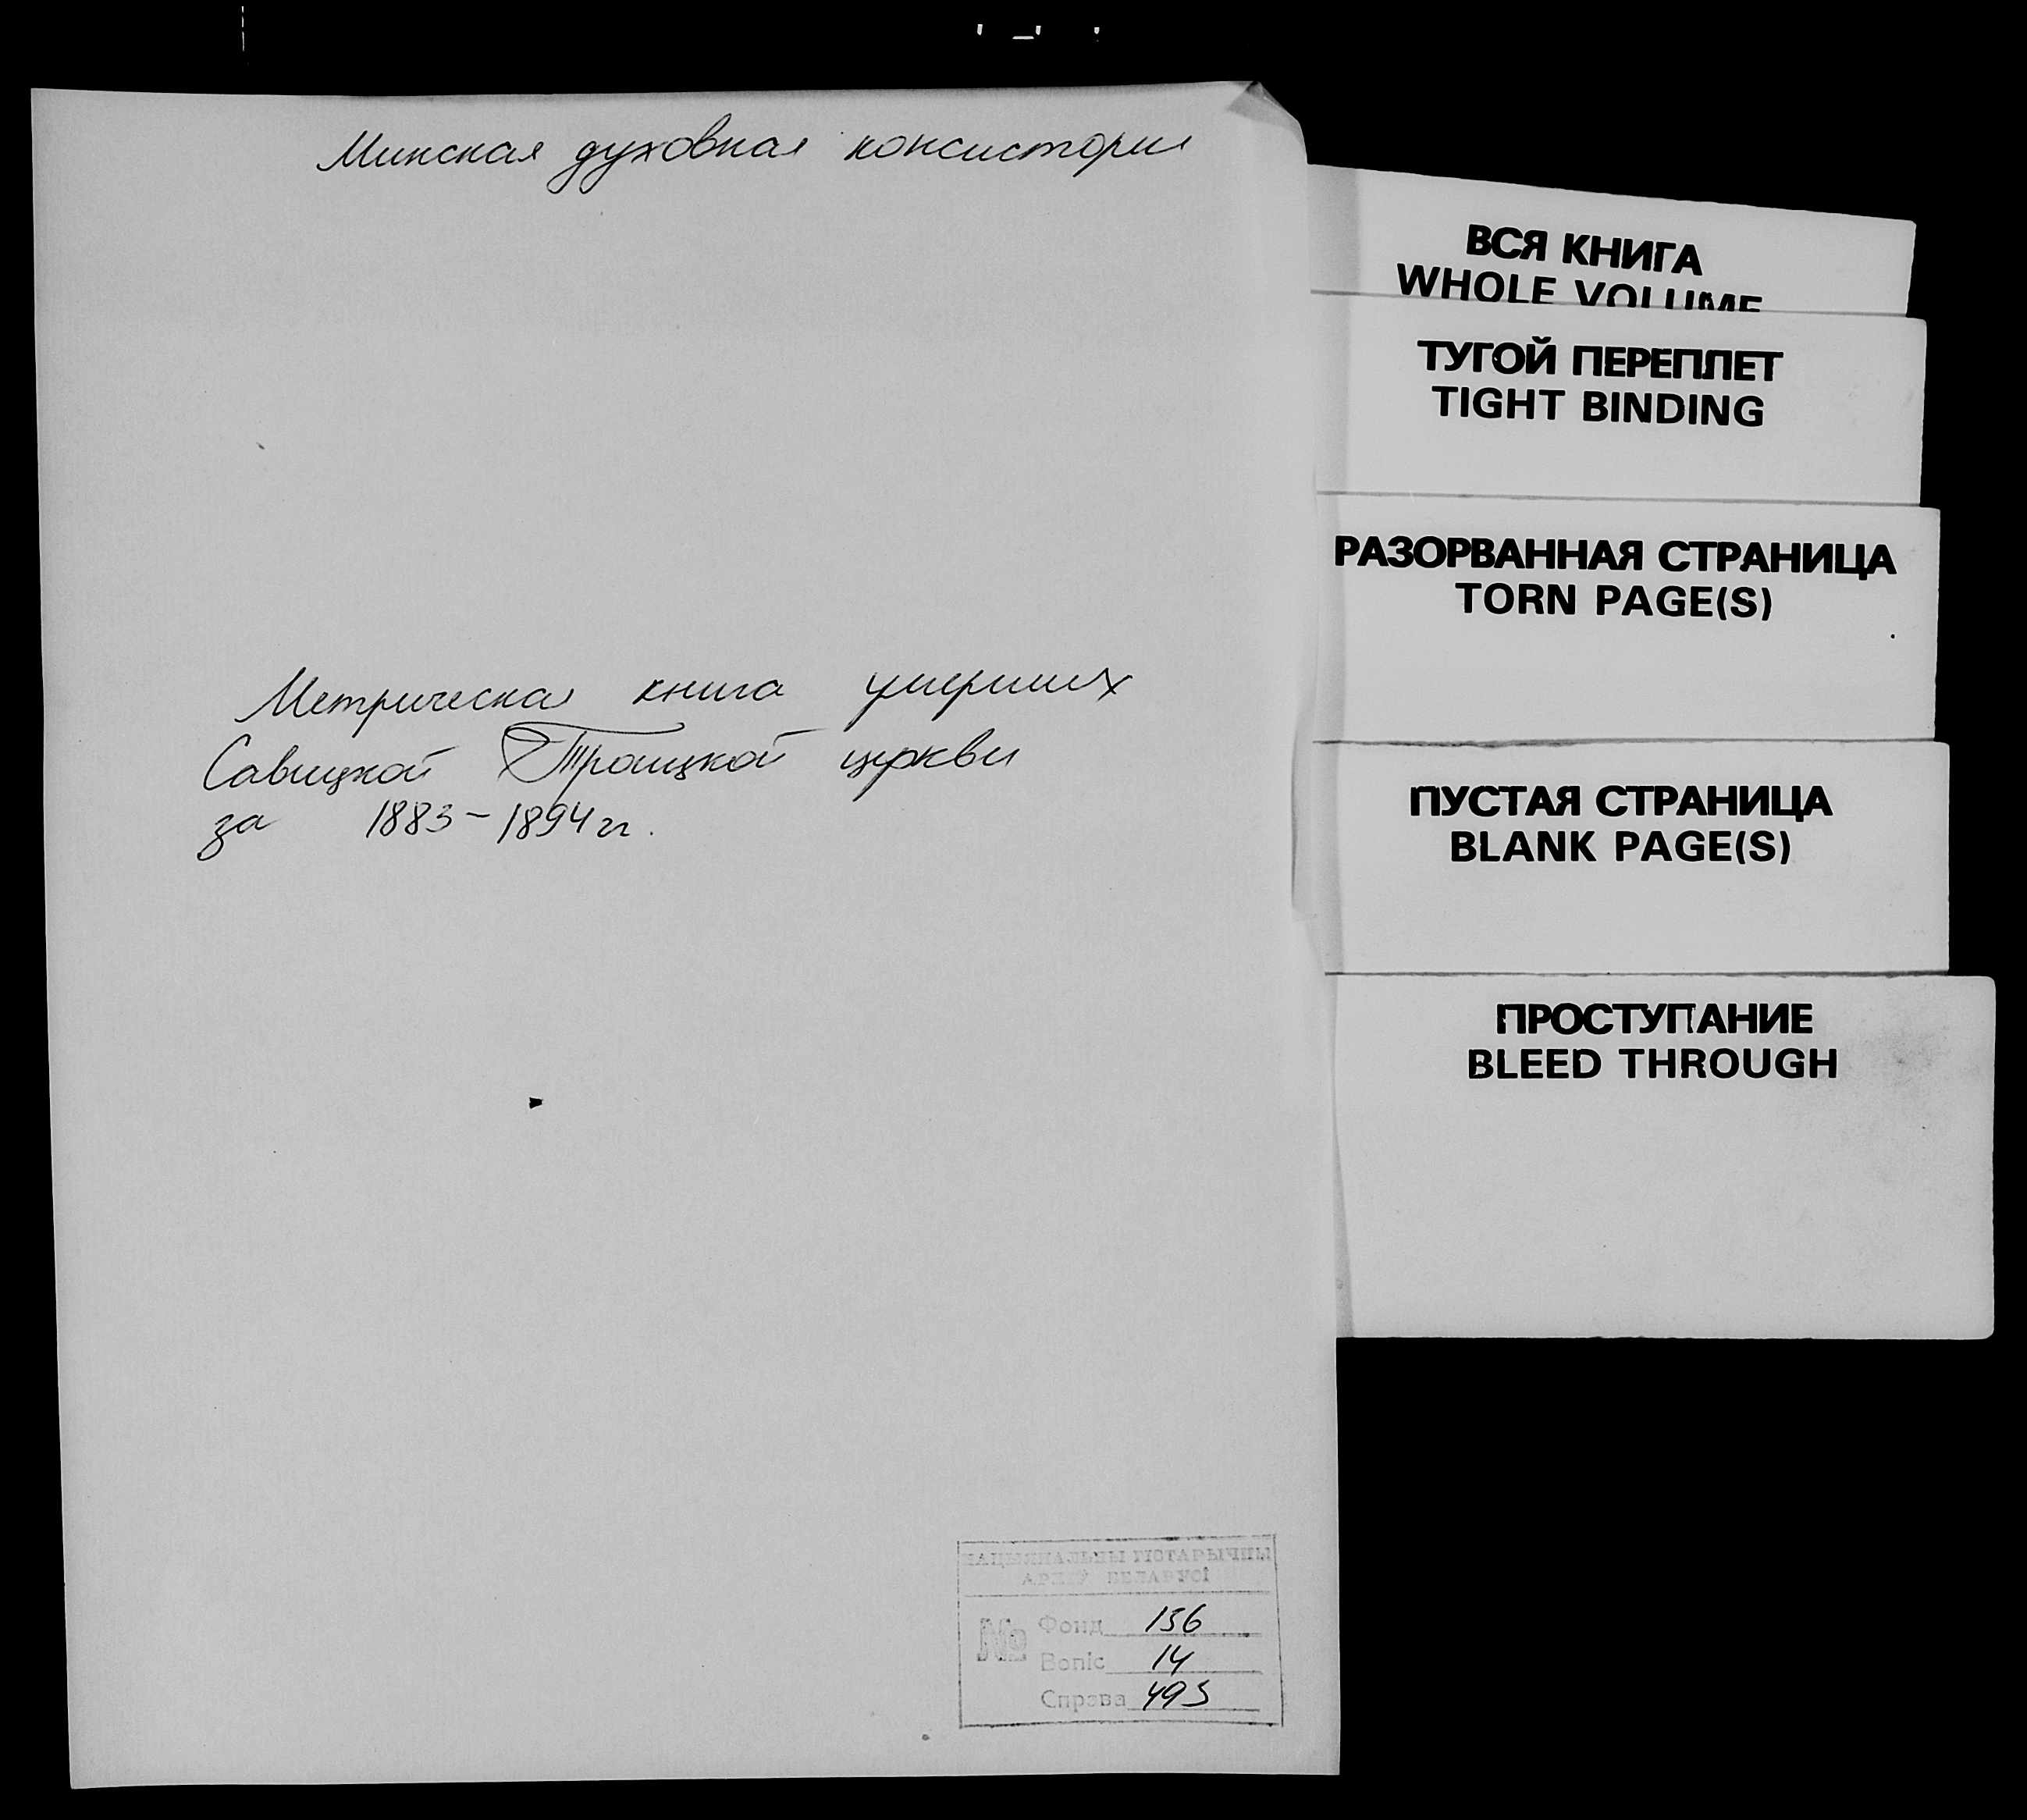 Минская духовная консистория
Метрическая книга умерших
Савицкой Троицкой церкви
за 1883-1894 гг.
НАЦЫЯНАЛЬНЫ ГІСТАРЫЧНЫ
АРХІЎ БЕЛАРУСІ
№ Фонд 136
Вопіс 14
Справа 493
ВСЯ КНИГА
WHOLE VOLUME
ТУГОЙ ПЕРЕПЛЕТ
TIGHT BINDING
РАЗОРВАННАЯ СТРАНИЦА
TORN PAGE(S)
ПУСТАЯ СТРАНИЦА
BLANK PAGE(S)
ПРОСТУПАНИЕ
BLEED THROUGH